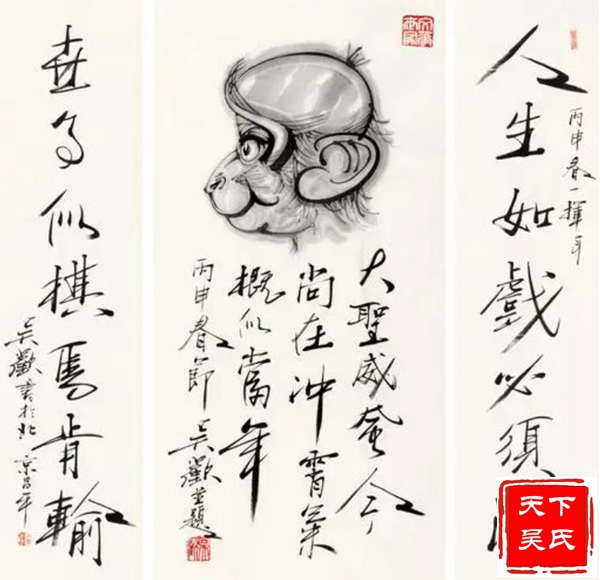 人生如戲必須
丙申春一揮
大聖威今
尚在冲霄氣
概似當年
丙申春節 吳歡並題
事似棋焉肯輸
吳歡書於北京昌平
天下
吴氏